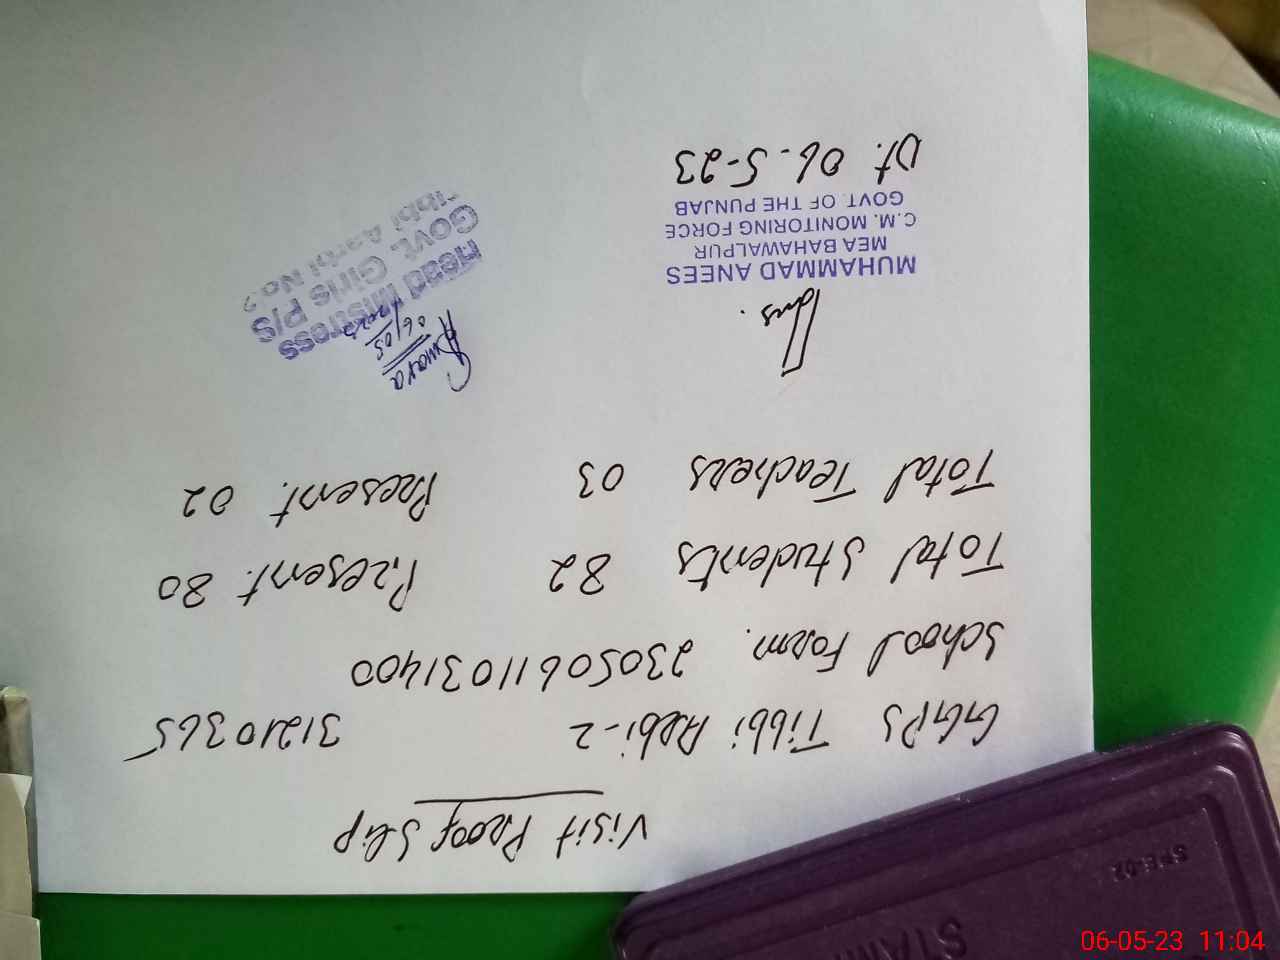 Visit Proof Slip
GGPS Tibbi Arbi-2 31210365
School Form. 23050611031400
Total Students 82 Present. 80
Total Teachers 03 Present. 02
Anees.
MUHAMMAD ANEES
MEA BAHAWALPUR
C.M. MONITORING FORCE
GOVT. OF THE PUNJAB
Dt. 06-5-23
06/05/2023
Head Mistress
Govt. Girls P/S
Tibbi Aarbi No.2
STAM
06-05-23 11:04